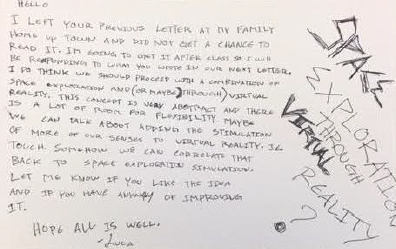 HELLO
I LEFT YOUR PREVIOUS LETTER AT MY FAMILY
HOME UP TOWN AND DID NOT GET A CHANCE TO
READ IT. IM GOING TO GET IT AFTER CLASS SO I WILL
BE RESPONDING TO WHAT YOU WROTE IN OUR NEXT LETTER.
I DO THINK WE SHOULD PROCEED WITH A COMBINATION OF
SPACE EXPLORATION AND/(OR MAYBE) THROUGH) VIRTUAL
REALITY. THIS CONCEPT IS VERY ABSTRACT AND THERE
IS A LOT OF ROOM FOR FLEXIBILITY MAYBE
WE CAN TALK ABOUT ADDING THE STIMULATION
OF MORE OF OUR SENSES TO VIRTUAL REALITY. IE
TOUCH. SOMEHOW WE CAN CORRELATE THAT
BACK TO SPACE EXPLORATION SIMULATION.
LET ME KNOW IF YOU LIKE THE IDEA
AND IF YOU HAVE OF IMPROVING
IT.
HOPE ALL IS WELL.
SPACE
EXPLORATION
THROUGH
VIRTUAL
REALITY
?